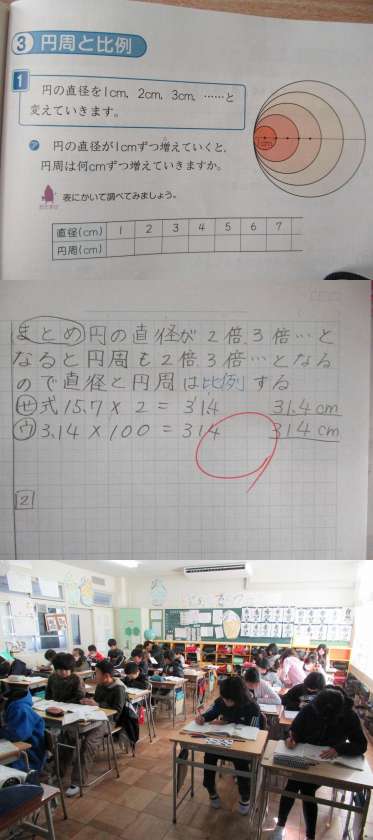 3 円周と比例
1
円の直径を1cm、2cm、3cm、……と
変えていきます。
ア 円の直径が1cmずつ増えていくと、
円周は何cmずつ増えていきますか。
表にかいて調べてみましょう。
1cm
直径(cm) 1 2 3 4 5 6 7
円周(cm)
まとめ 円の直径が2倍、3倍…と
なると円周も2倍、3倍…となる
ので直径と円周は比例する
せ 式 15.7×2=31.4 31.4cm
ウ 3.14×100=314 314cm
2